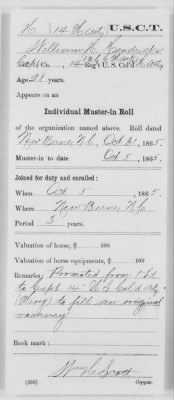 H 14 H Arty U.S.C.T.
William H. Hendricks
Capt, Co. , 14 Reg't U.S. Col'd H Arty
Age years.
Appears on an
Individual Muster-in Roll
of the organization named above. Roll dated
New Berne, N.C., Oct 31, 1865.
Muster-in to date Oct 5, 1865.
Joined for duty and enrolled:
When Oct 5, 1865.
Where New Berne, N.C.
Period 3 years.
Valuation of horse, $ 100
Valuation of horse equipments, $ 100
Remarks: Promoted from 1 Lt
to Capt 14" U.S. Cold Arty
(Heavy) to fill an original
vacancy
Book mark:
Wm C Scott
(330) Copyist.